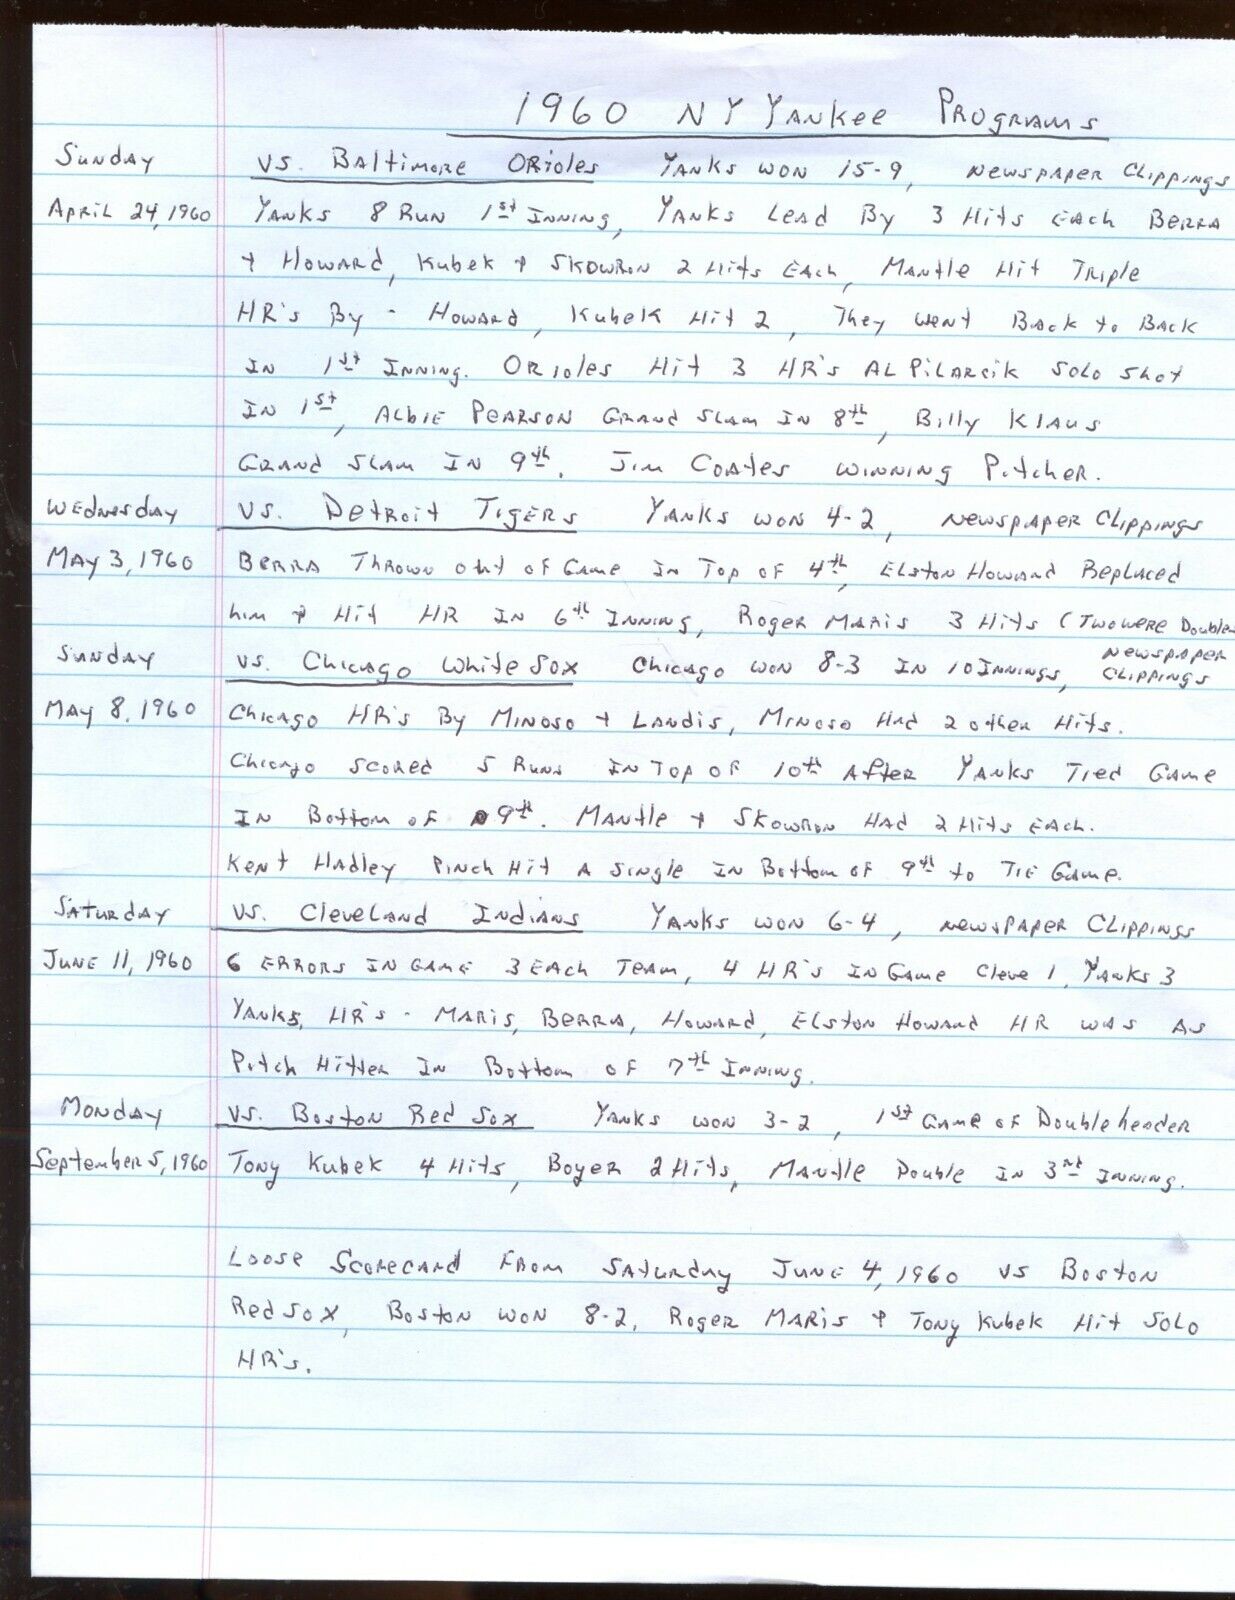 1960 NY Yankee Programs
Sunday vs. Baltimore Orioles Yanks won 15-9, Newspaper Clippings
April 24, 1960 Yanks 8 Run 1st Inning, Yanks Lead By 3 Hits Each Berra
+ Howard, Kubek + Skowron 2 Hits Each, Mantle Hit Triple
HR's By - Howard, Kubek Hit 2, They went Back to Back
In 1st Inning. Orioles Hit 3 HR's Al Pilarcik Solo Shot
In 1st, Albie Pearson Grand Slam In 8th, Billy Klaus
Grand Slam In 9th. Jim Coates winning Pitcher.
Wednesday vs. Detroit Tigers Yanks won 4-2, Newspaper Clippings
May 3, 1960 Berra Thrown out of Game In Top of 4th, Elston Howard Replaced
him + Hit HR In 6th Inning, Roger Maris 3 Hits (Two were Doubles
Sunday vs. Chicago White Sox Chicago won 8-3 In 10 Innings, Newspaper Clippings
May 8, 1960 Chicago HR's By Minoso + Landis, Minoso Had 2 other Hits.
Chicago Scored 5 Runs In Top of 10th After Yanks Tied Game
In Bottom of 9th. Mantle + Skowron Had 2 Hits Each.
Kent Hadley Pinch Hit A Single In Bottom of 9th to Tie Game.
Saturday vs. Cleveland Indians Yanks won 6-4, Newspaper Clippings
June 11, 1960 6 Errors In Game 3 Each Team, 4 HR's In Game Cleve 1, Yanks 3
Yanks, HR's - Maris, Berra, Howard, Elston Howard HR was As
Pitch Hitter In Bottom of 7th Inning.
Monday vs. Boston Red Sox Yanks won 3-2, 1st Game of Doubleheader
September 5, 1960 Tony Kubek 4 Hits, Boyer 2 Hits, Mantle Double In 3rd Inning.
Loose Scorecard From Saturday June 4, 1960 vs Boston
Red Sox, Boston won 8-2, Roger Maris + Tony Kubek Hit Solo
HR's.